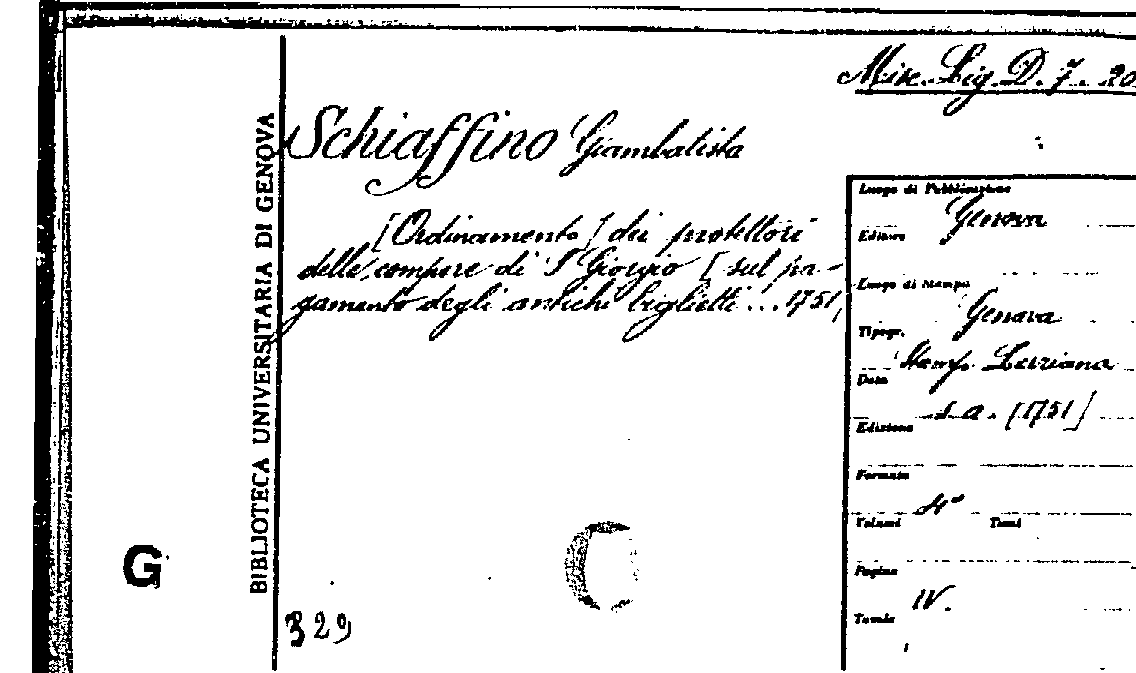 Misc. Lig. D. 7. 20
Schiaffino Giambatista
[Ordinamento] dei protettori
delle compere di S Giorgio [sul pa-
gamento degli antichi biglietti ... 1751,
BIBLIOTECA UNIVERSITARIA DI GENOVA
G
329
Luogo di Pubblicazione
Genova
Editore
Luogo di Stampa
Genova
Tipogr.
Stamp. Lerziana
Data
s. a. [1751]
Edizione
Formato
4°
Volumi Tomi
Pagine
IV.
Tavole